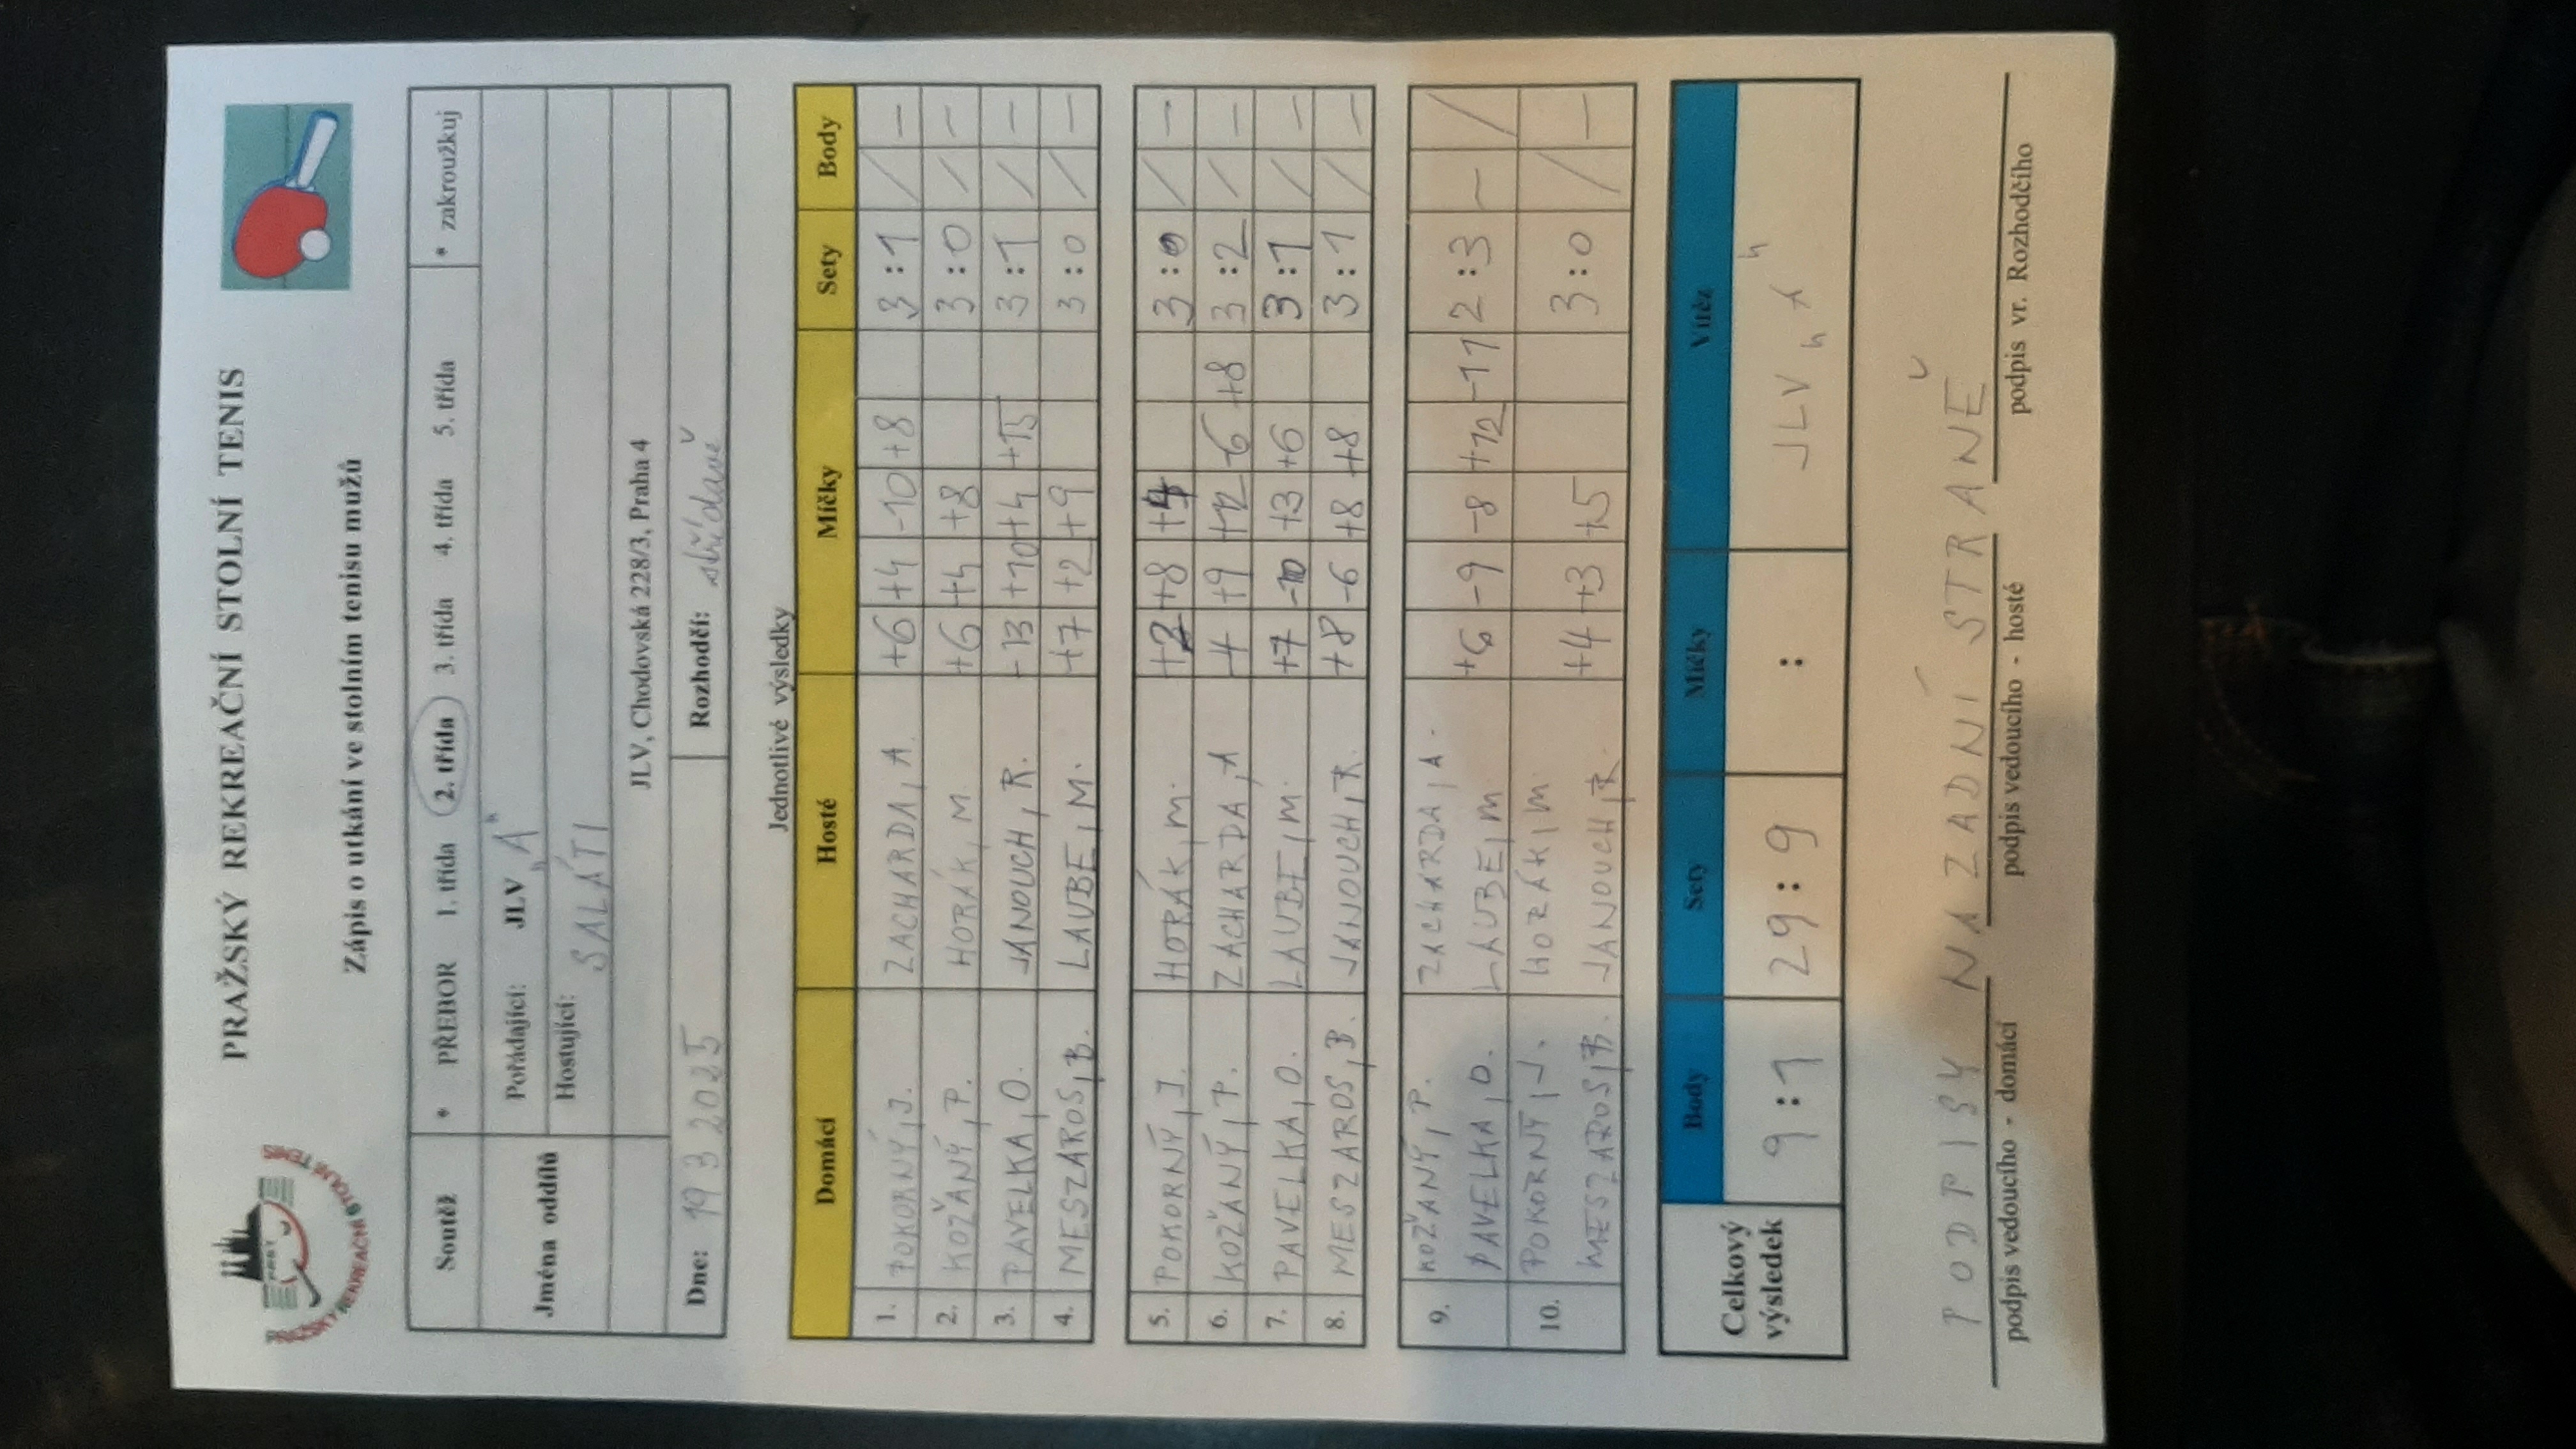 PRAŽSKÝ REKREAČNÍ STOLNÍ TENIS
Zápis o utkání ve stolním tenisu mužů
Soutěž * PŘEBOR 1. třída 2. třída 3. třída 4. třída 5. třída * zakroužkuj
Jména oddílů
Pořádající: JLV „A"
Hostující: SALÁTI
JLV, Chodovská 228/3, Praha 4
Dne: 19 3 2025 Rozhodčí: střídavě
Jednotlivé výsledky
Domácí Hosté Míčky Sety Body
1. POKORNÝ, J. ZACHARDA, A. +6 +4 -10 +8 3 : 1 / –
2. KOŽANÝ, P. HORÁK, M. +6 +4 +8 3 : 0 / –
3. PAVELKA, O. JANOUCH, R. +13 +10 +4 +15 3 : 1 / –
4. MESZAROS, B. LAUBE, M. +7 +2 +9 3 : 0 / –
5. POKORNÝ, J. HORÁK, M. +8 3 : 0 / –
6. KOŽANÝ, P. ZACHARDA, A +9 +12 -6 +8 3 : 2 / –
7. PAVELKA, O. LAUBE, M. +7 -10 +3 +6 3 : 1 / –
8. MESZAROS, B. JANOUCH, R. +8 -6 +8 +8 3 : 1 / –
9. KOŽANÝ, P. ZACHARDA, A.
PAVELKA, O. LAUBE, M. +6 -9 -8 +12 -11 2 : 3 – /
10. POKORNÝ, J. HORÁK, M.
MESZAROS, B. JANOUCH, R. +4 +3 +5 3 : 0 / –
Celkový výsledek
Body Sety Míčky Vítěz
9 : 1 29 : 9 : JLV „A"
PODPISY NA ZADNÍ STRANĚ
podpis vedoucího - domácí podpis vedoucího - hosté podpis vr. Rozhodčího